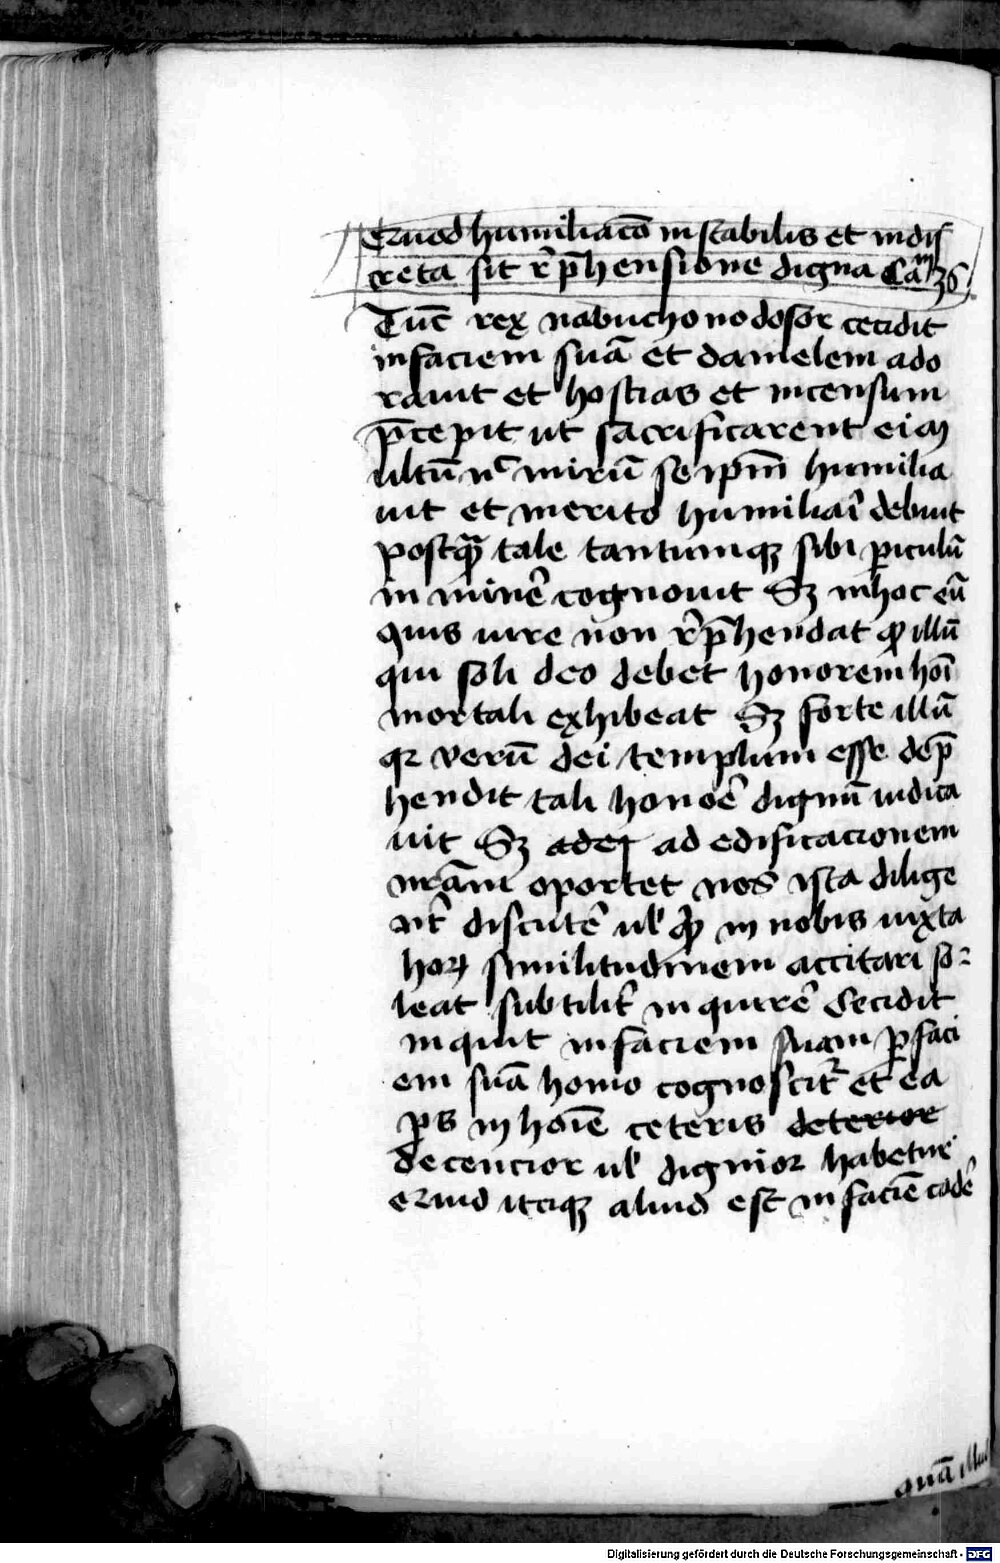 Quod humiliacō instabilis et indis
creta sit r̄p̄hensione digna Caᵐ 36
Tūc rex nabuchonodosor cecidit
in faciem suā et danielem ado
rauit et hostias et incensum
p̄cepit ut sacrificarent ei
ultū nᶜ mirū se ipm̄ humilia
uit et merito humiliari debuit
postq̄ tale tantumqꝫ sibi piculū
iminē cognouit Sꝫ in hoc eū
quis iure non r̄p̄hendat illū
qui soli deo debet honorem hoī
mortali exhibeat Sꝫ forte illū
qꝛ verū dei templum esse dep̄
hendit tali honoē dignū iudica
uit Sꝫ ad edificacionem
nrām oportet nos ista dilige
nt̄ discutē ul in nobis iuxta
hoꝝ similitudinem accitari so-
leat subtilit̄ inquirē Cecidit
inquit in faciem suam p faci
em suā homo cognoscit̄ et ea
ps in hoīe ceteris deterior
decencior ul dignior habetur
aliud est in faciē cadē
quā illud
Digitalisierung gefördert durch die Deutsche Forschungsgemeinschaft - DFG